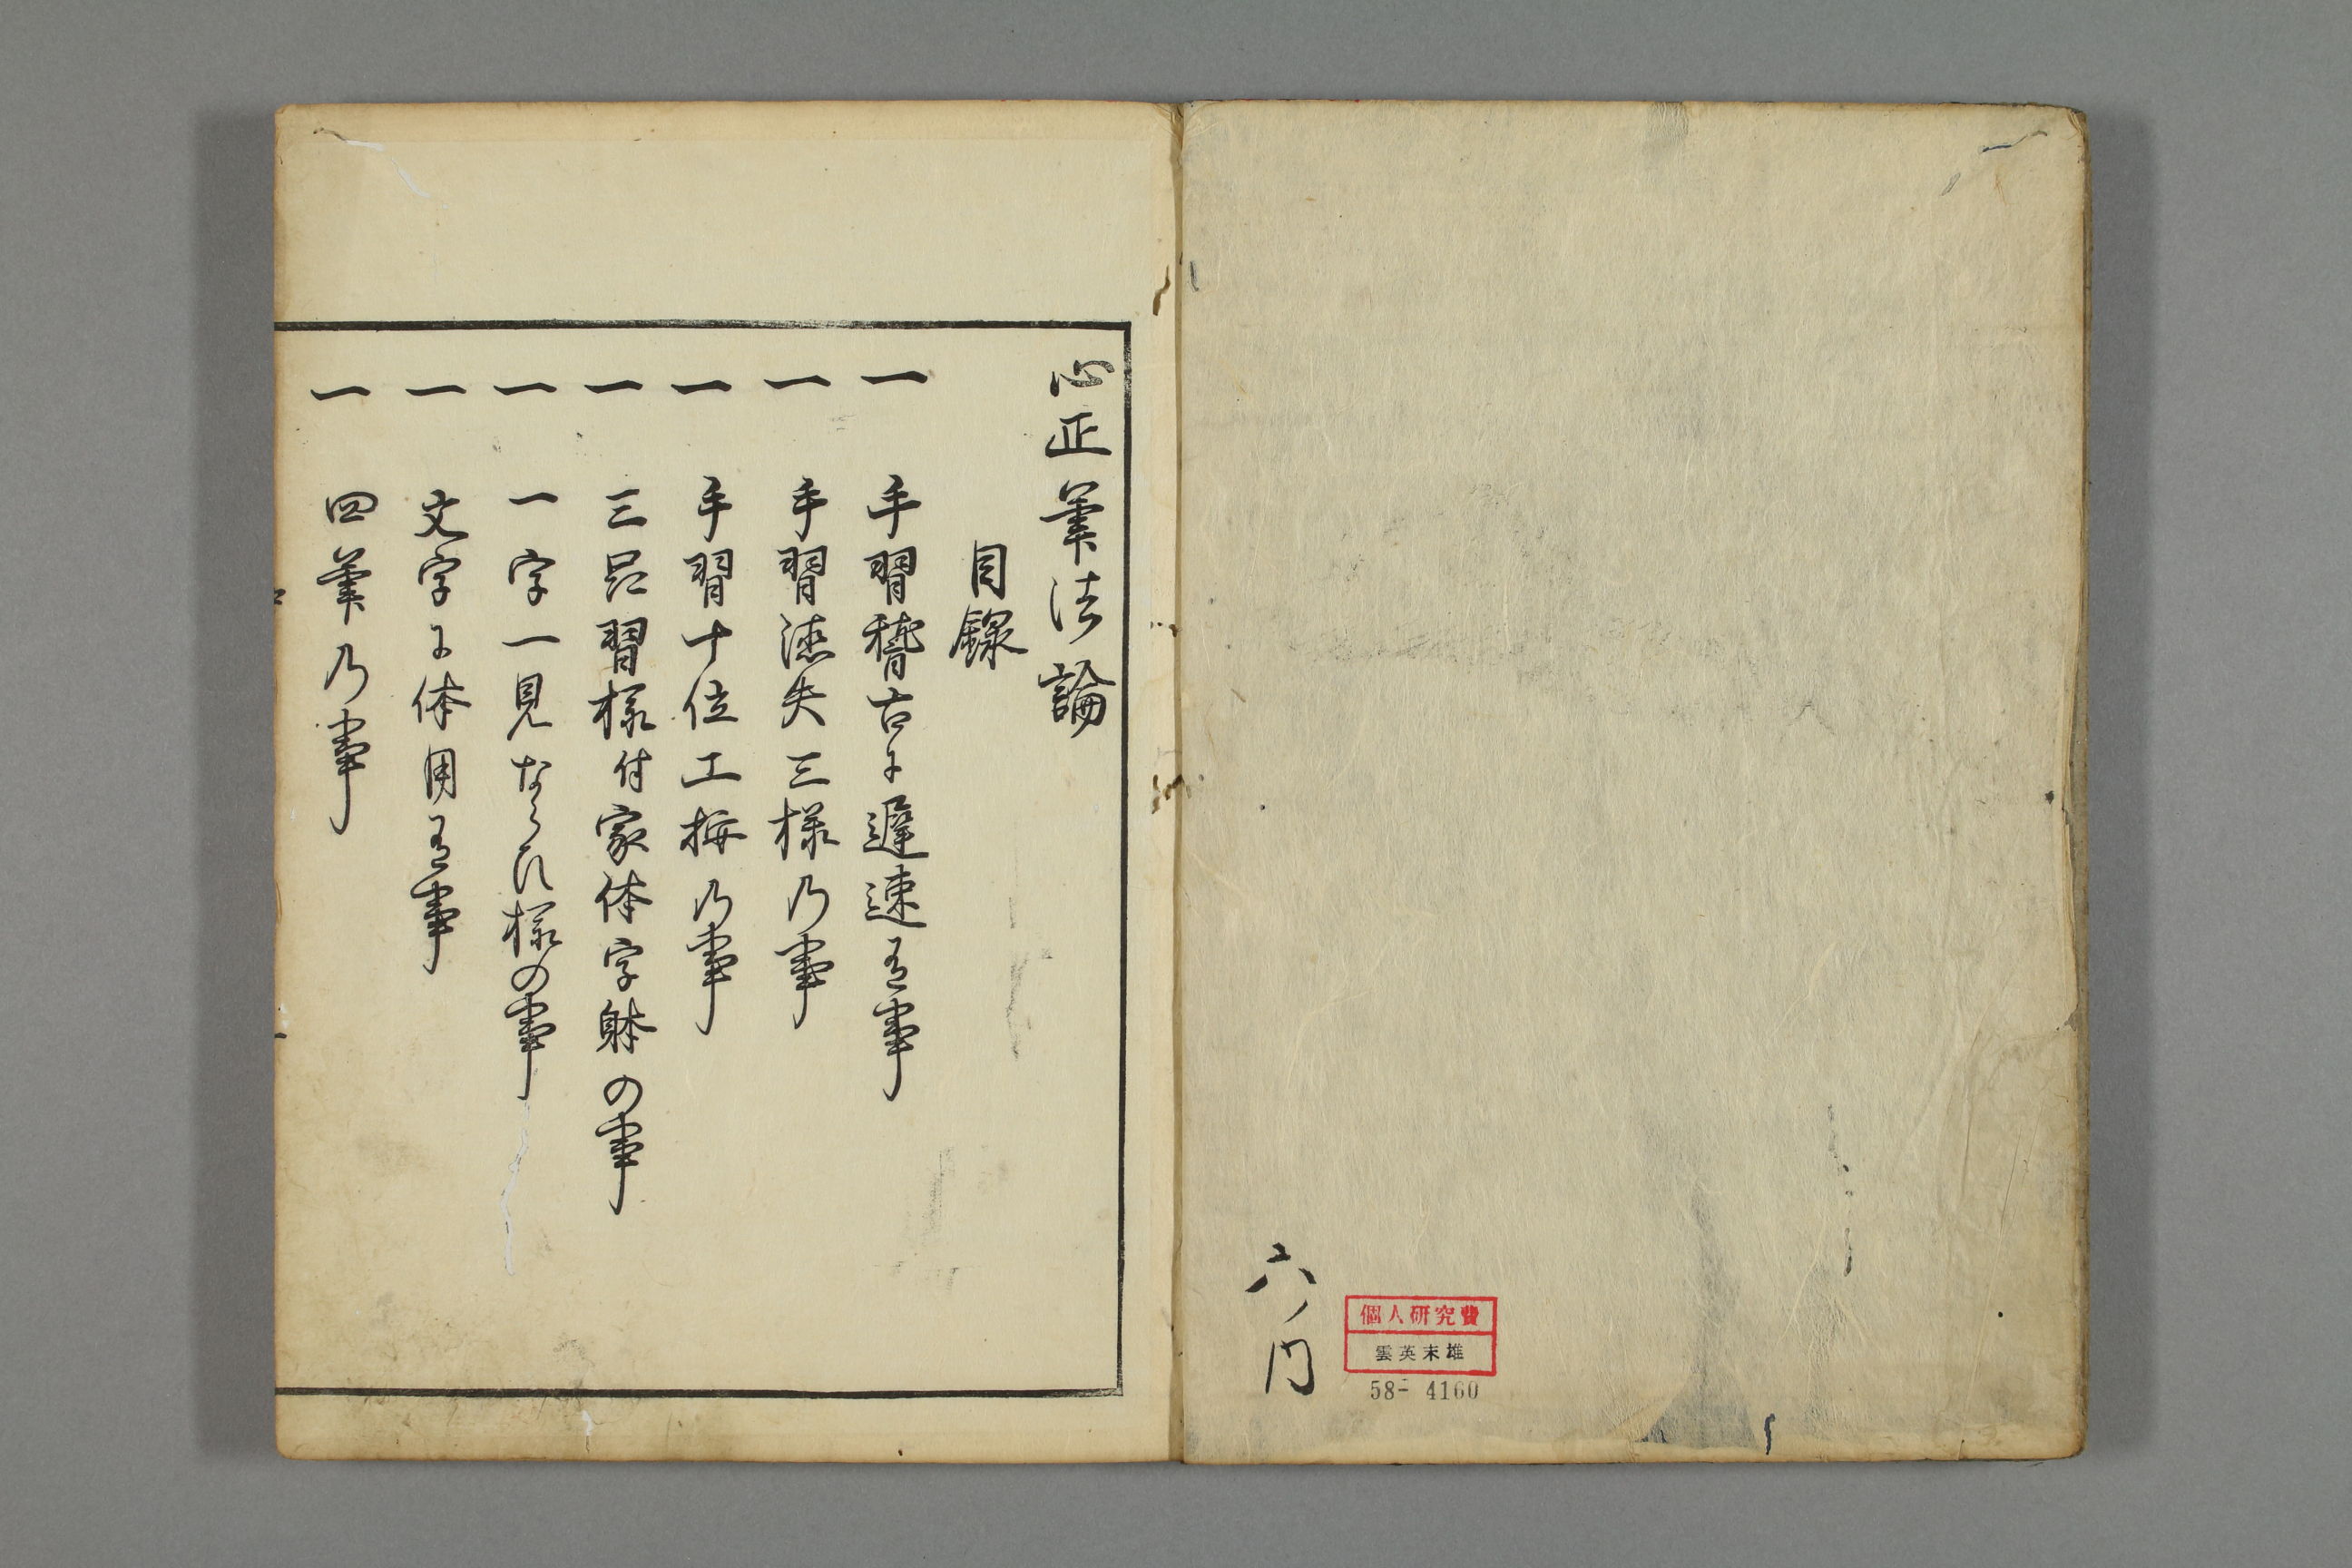 六ノ
円
個人研究費
雲英末雄
58- 4160
心正筆法論
目録
一 手習稽古に遅速有事
一 手習徳失三様乃事
一 手習十位工拙乃事
一 三品習様付家体字躰の事
一 一字一見ならひ様の事
一 文字に体用有事
一 四筆乃事